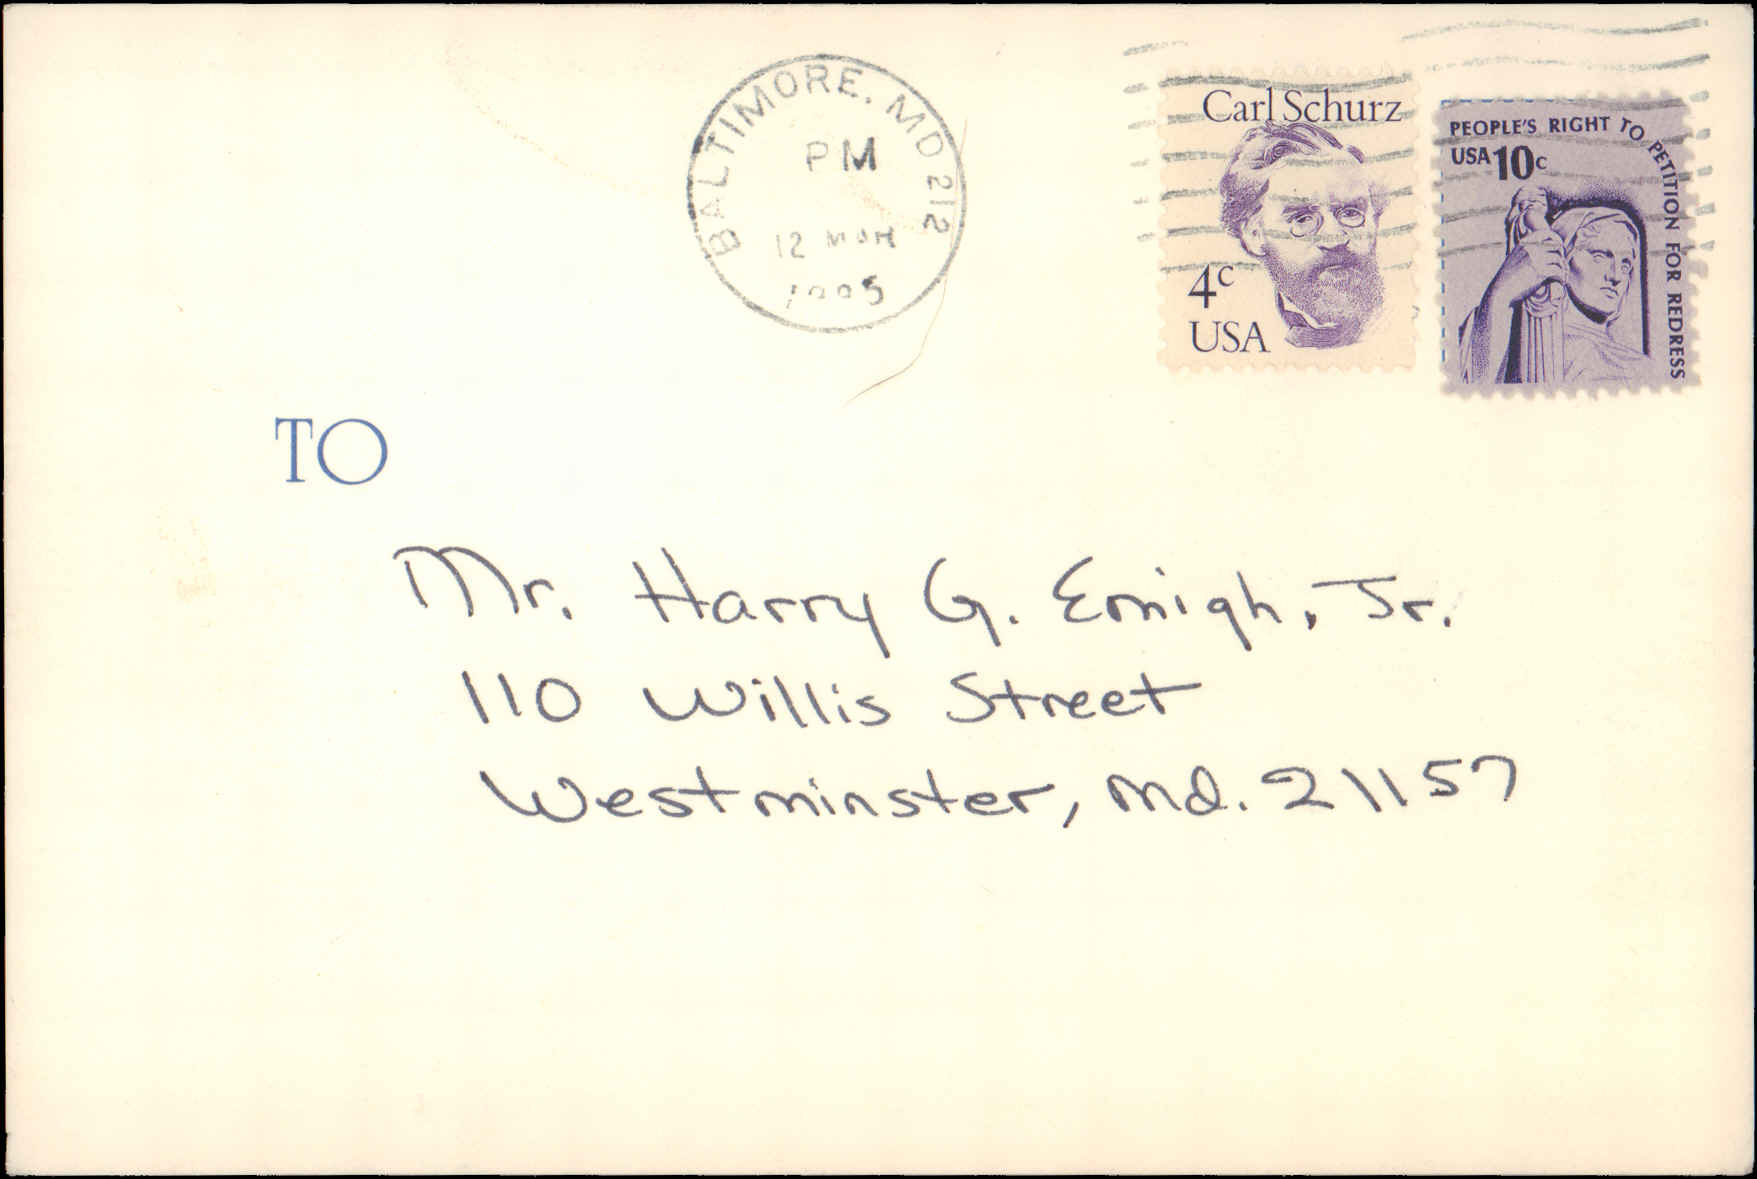 BALTIMORE, MD 212
PM
12 MAR
Carl Schurz
4c
USA
PEOPLE'S RIGHT TO PETITION FOR REDRESS
USA 10c
TO
Mr. Harry G. Emigh, Jr.
110 Willis Street
Westminster, Md. 21157